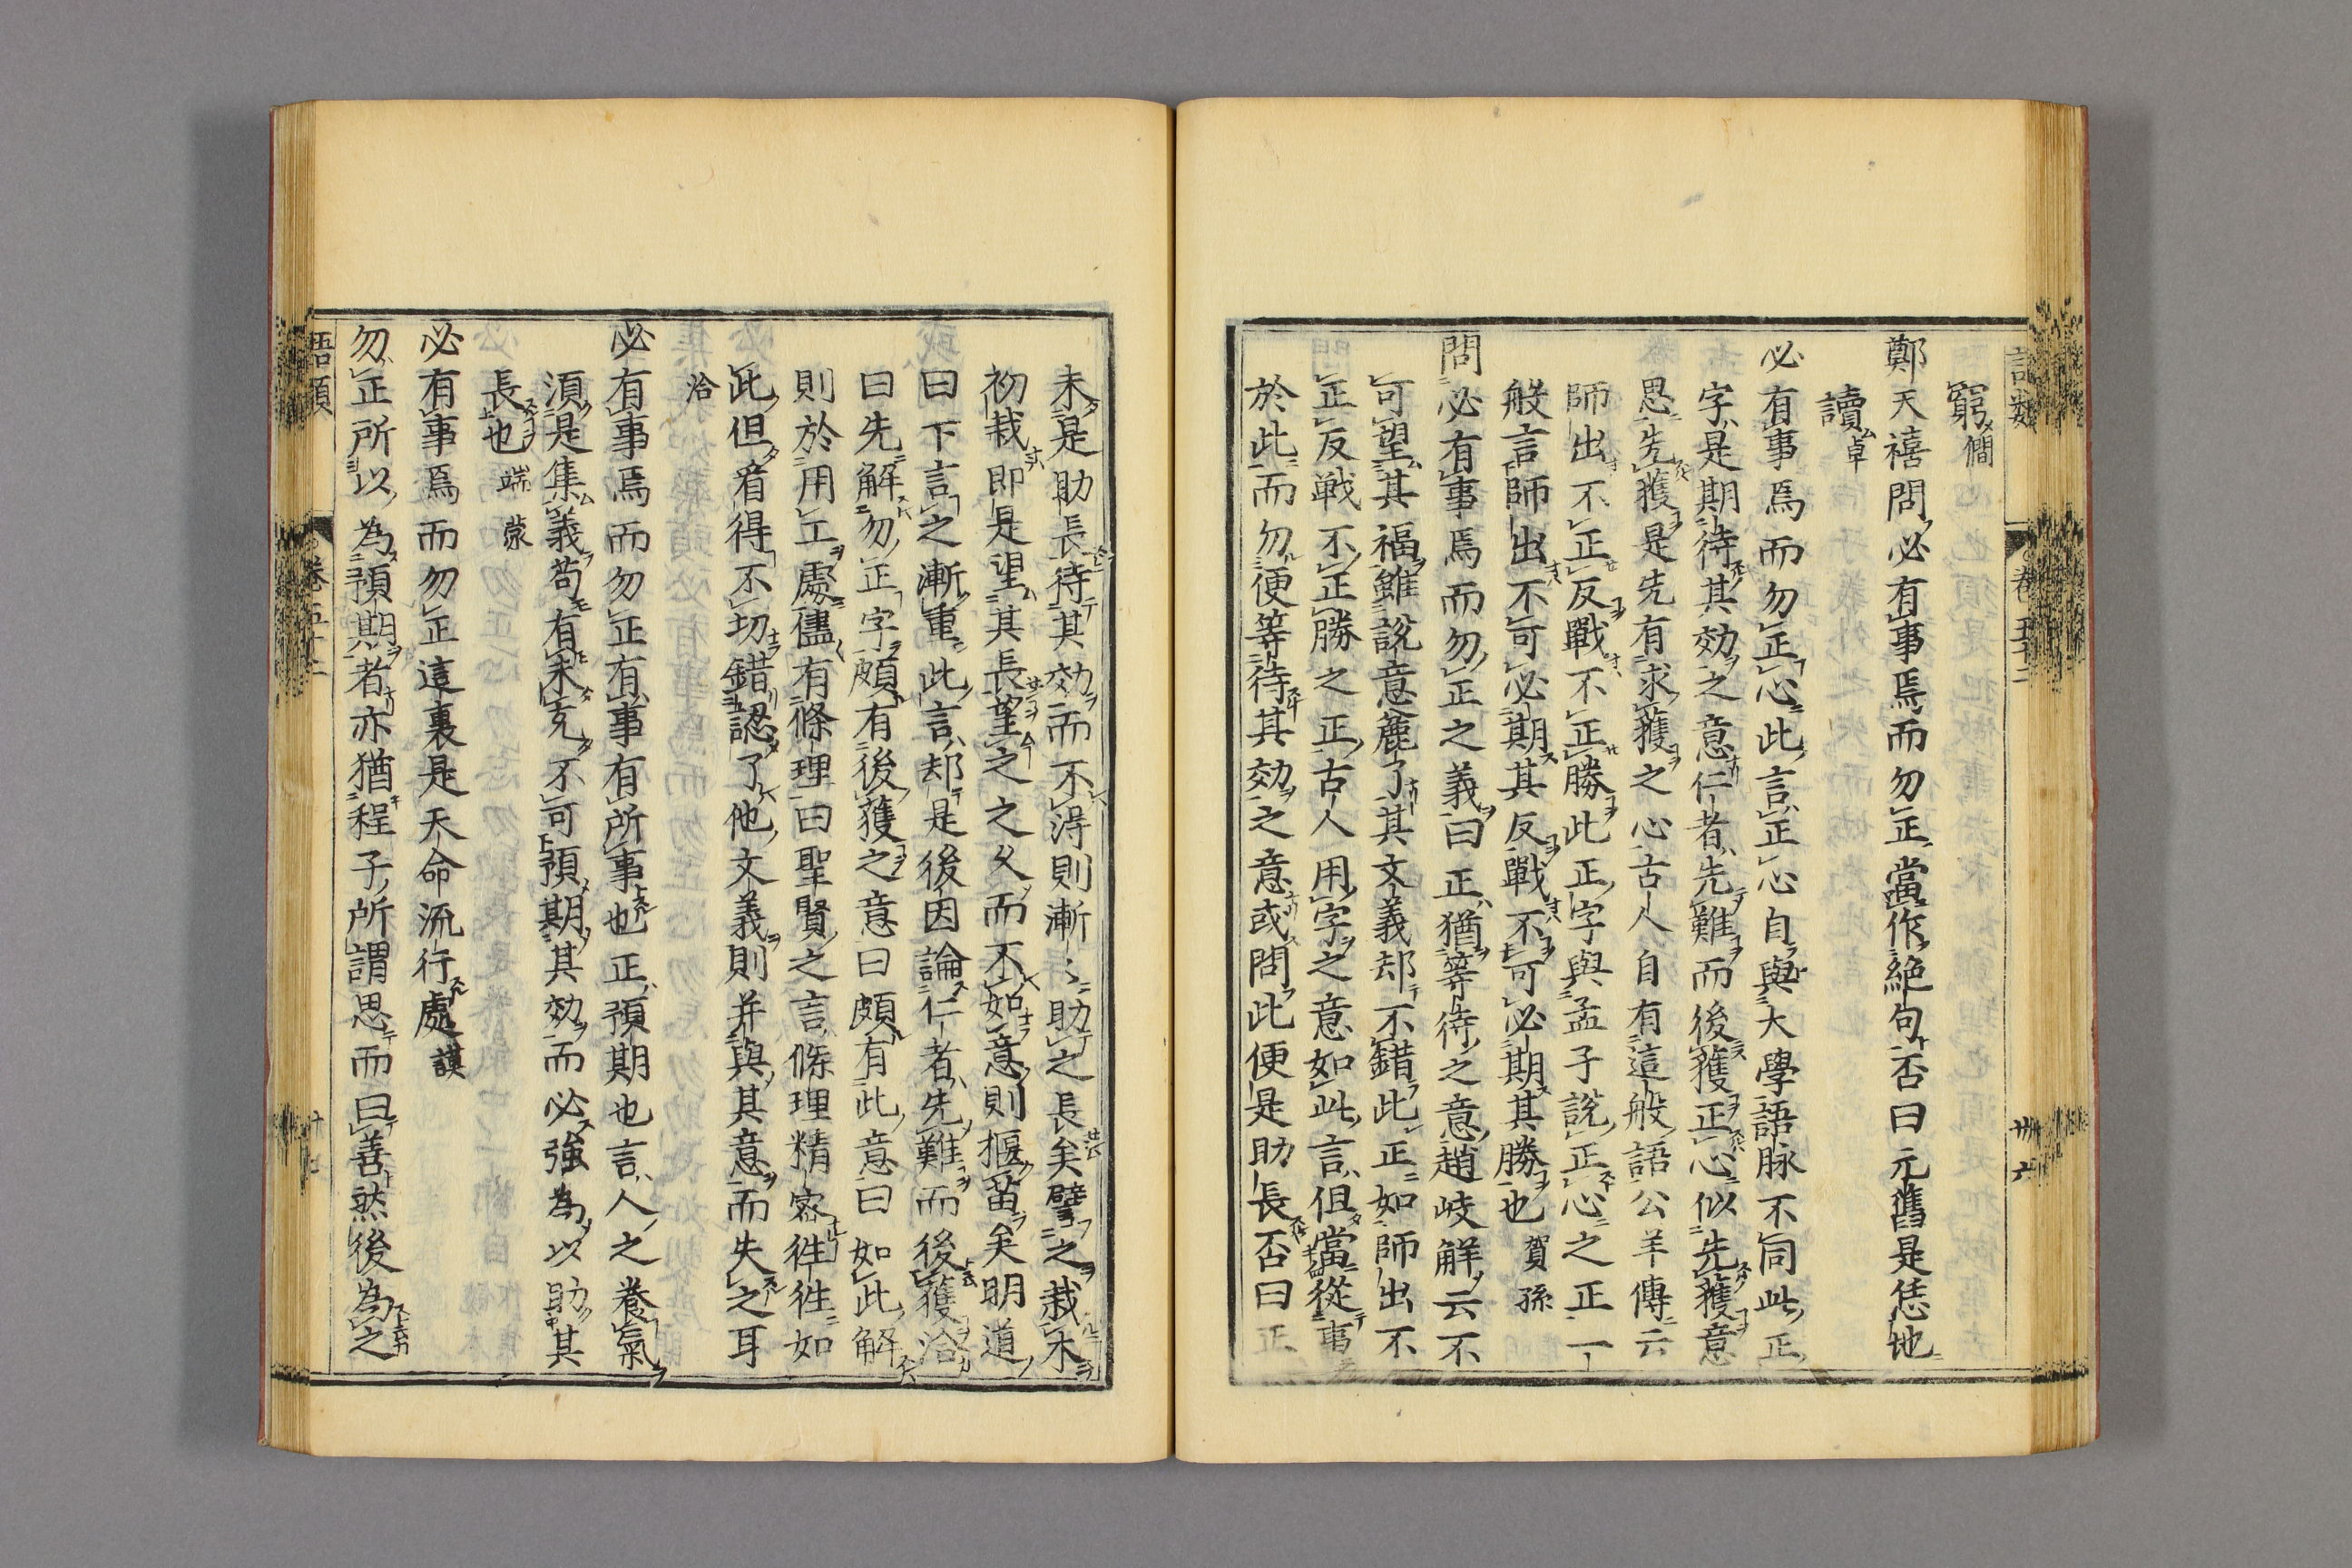 窮僴
鄭天禧問必有事焉而勿正當作絶句否曰元舊是恁地
讀卓
必有事焉而勿正心此言正心自與大學語脉不同此正
字是期待其効之意仁者先難而後獲正心似先獲意
思先獲是先有求獲之心古人自有這般語公羊傳云
師出不正反戰不正勝此正字與孟子說正心之正一
般言師出不可必期其反戰不可必期其勝也賀孫
問必有事焉而勿正之義曰正猶等待之意趙岐解云不
可望其福雖說意麄了其文義却不錯此正如師出不
正反戰不正勝之正古人用字之意如此言但當從事
於此而勿便等待其効之意或問此便是助長否曰正
未是助長待其効而不得則漸〻助之長矣譬之栽木
初栽即是望其長望之之久而不如意則揠苗矣明道
曰下言之漸重此言却是後因論仁者先難而後獲洽
曰先解勿正字頗有後獲之意曰頗有此意曰如此解
則於用工處儘有條理曰聖賢之言條理精密徃徃如
此但看得不切錯認了他文義則并與其意而失之耳
洽
必有事焉而勿正有事有所事也正預期也言人之養氣
須是集義苟有未充不可預期其効而必強為以助其
長也端蒙
必有事焉而勿正這裏是天命流行處謨
勿正所以為預期者亦猶程子所謂思而曰善然後為之
語類
卷五十二